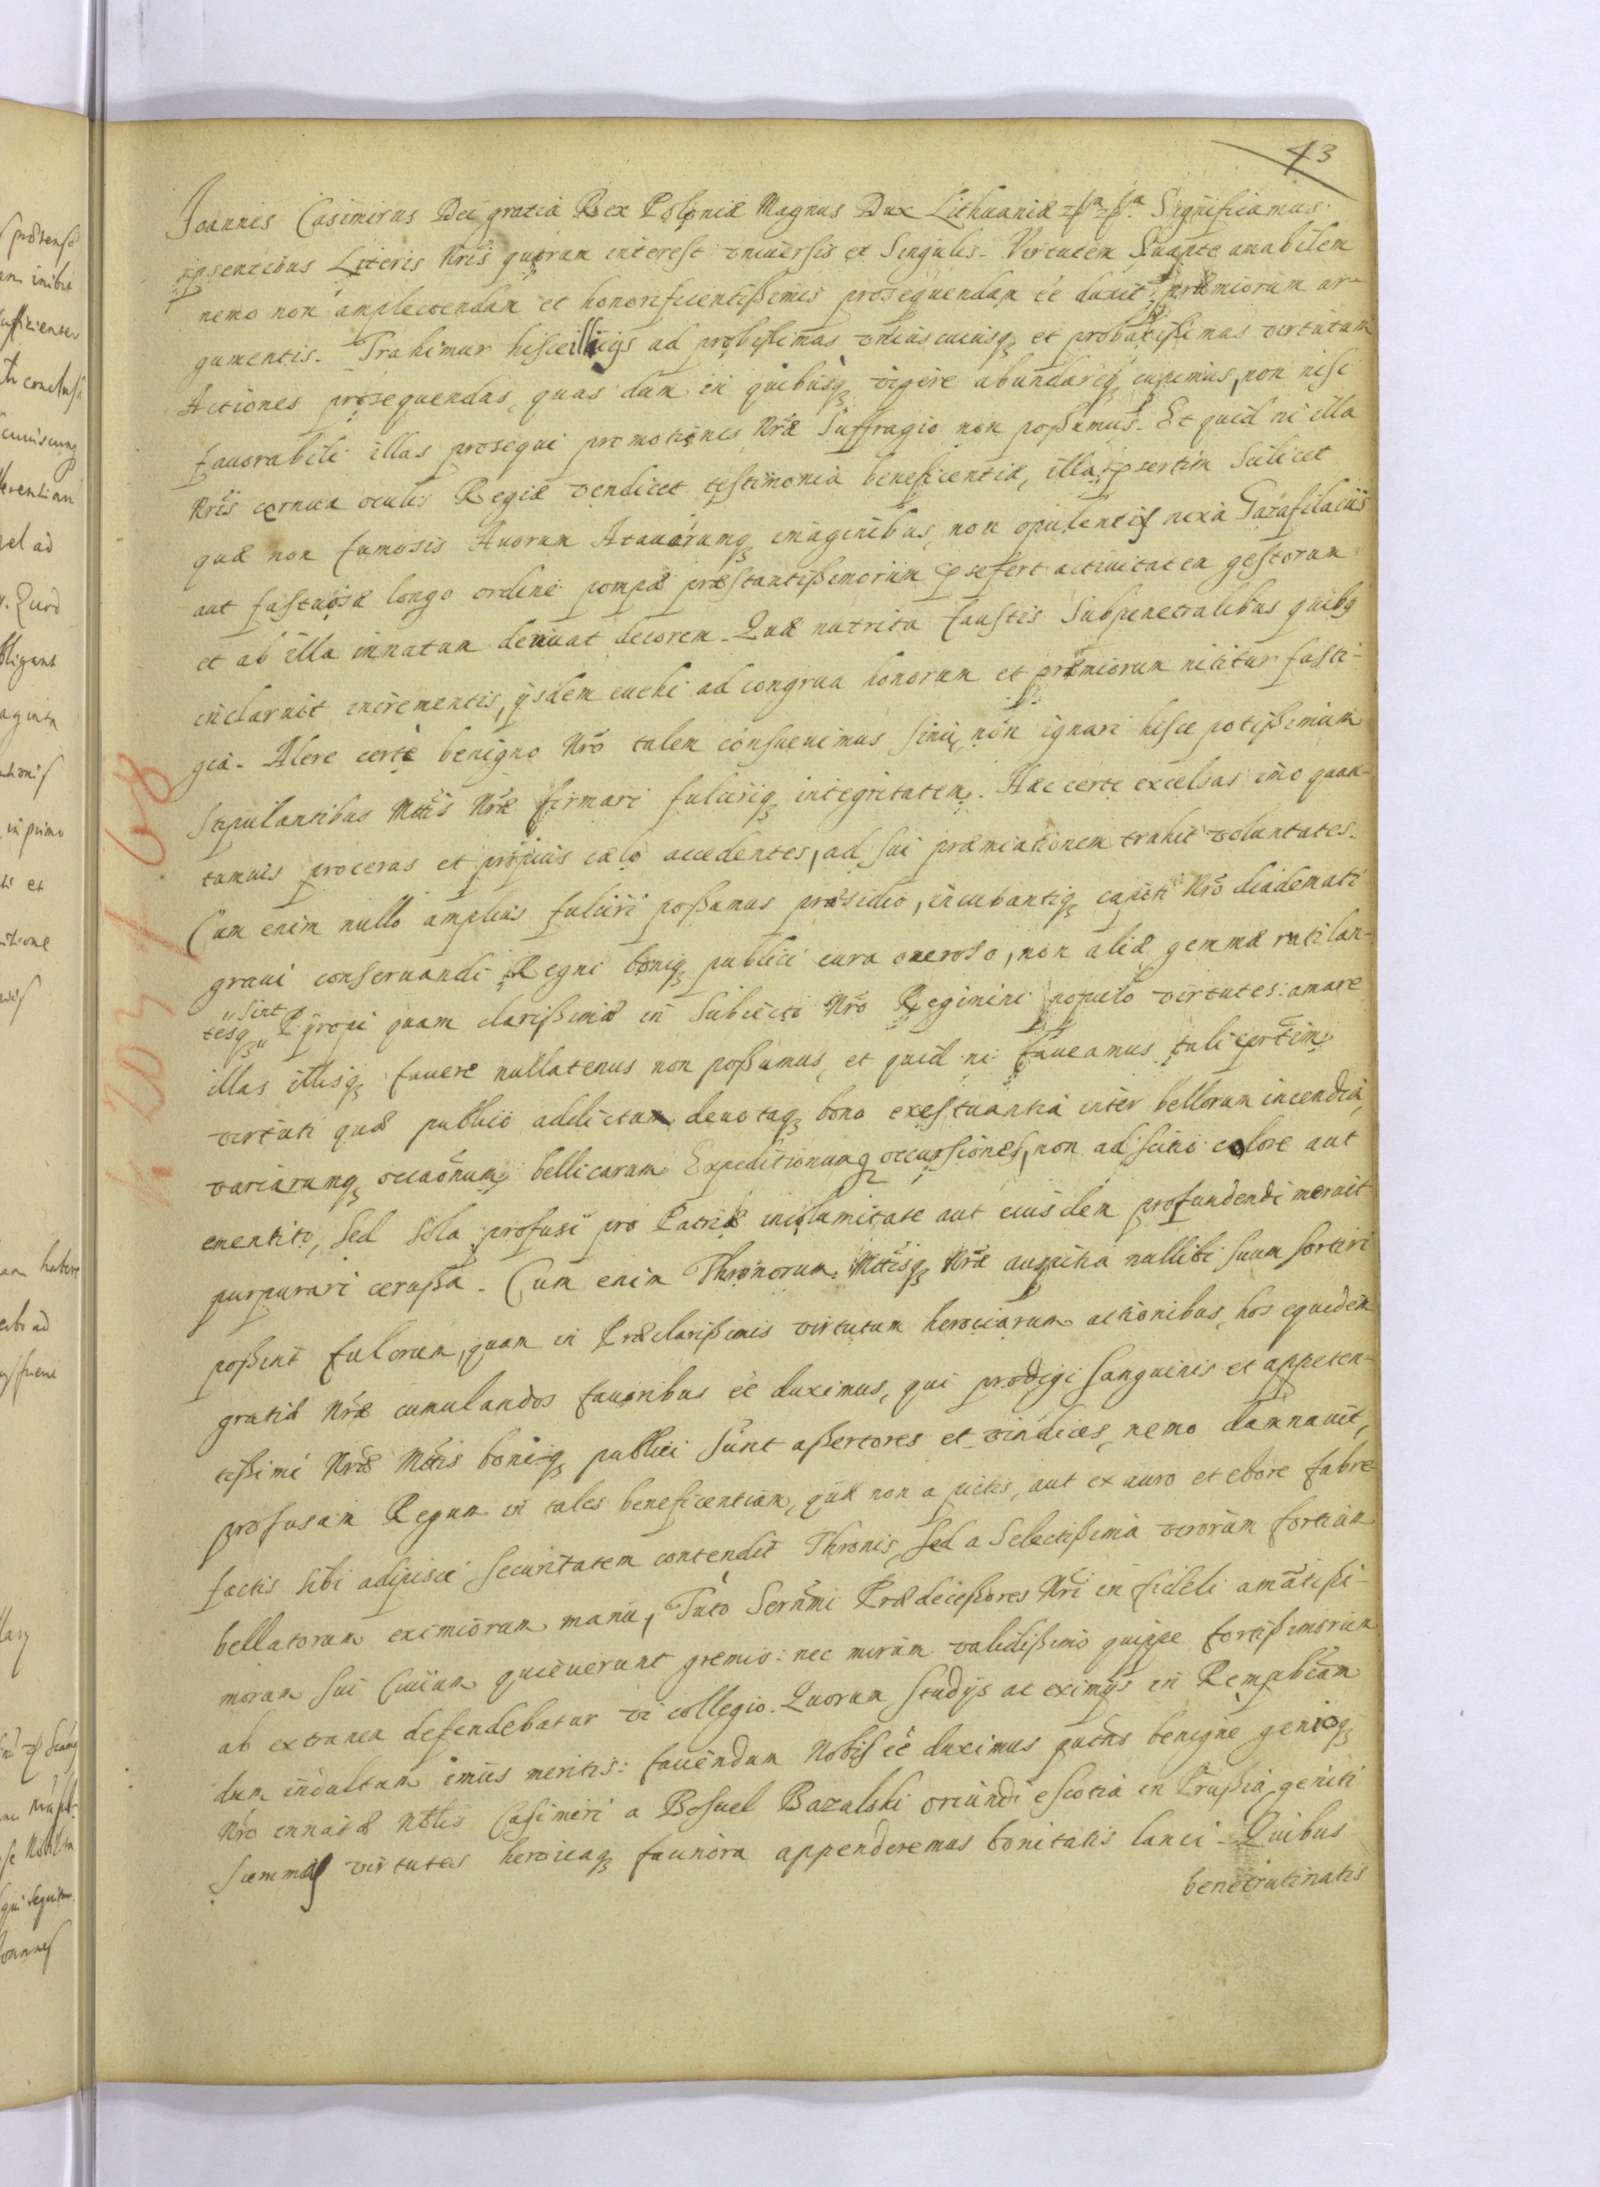 43
Joannis Casimirus Dei gratia Rex Poloniæ Magnus Dux Lithuaniæ Significamus
psentibus Literis Nris quorum interest universis et Singulis. Virtutem Suapte amabilem
nemo non amplectendam et honorificentißimis prosequendam ee duxit præmiorum ar-
gumentis. Trahimur hisce illicijs ad probißimas uniuscuiusq et probatißimas virtutum
Actiones prosequendas, quas dum in quibusq vigere abundareq cupimus, non nisi
favorabili illas prosequi promotionis Nræ Suffragio non poßumus. Et quid ni illa
Nris cernua oculis Regiæ vendicet testimonia beneficentiæ, illa psertim Scilicet
quæ non fumosis Avorum Atavorumq imaginibus, non opulentis nixa Gazafilaciis
aut fastuosæ longo ordine pompæ præstantißimorum psefert activitatem gestorum
et ab illa innatum denuat decorem. Quæ nutrita faustis Subpenetralibus quibq
inclaruit incrementis, ijsdem evehi ad congrua honorum et præmiorum nititur fasti-
gia. Alere certe benigno Nro talem consuevimus sinu, non ignari hisce potißimum
stipulantibus Mttis Nræ firmari fulciriq integritatem. Hæc certe excelsas imo quan-
tumvis proceras et propius cælo accedentes, ad sui præmiationem trahit voluntates.
Cum enim nullo amplius fulciri poßumus præsidio, incubantiq capiti Nro diademati
gravi conservandi Regni boniq publici cura oneroso, non aliæ gemmæ rutilan-
tesq sint Pyropi quam clarißimæ in Subiecto Nro Regimini populo virtutes: amare
illas illisq favere nullatenus non poßumus, et quid ni faveamus tali psertim
virtuti quæ publico addictam devotaq bono exestuantia inter bellorum incendia,
variarumq occaonum bellicarum Expeditionumq occursiones, non adscitio colore aut
ementito, sed sola profusi pro Patriæ incolumitate aut eiusdem profundendi meruit
purpurari cerußa. Cum enim Thronorum Mttisq Nræ auspitia nullibi suum sortiri
poßint fulcrum, quam in Præclarißimis virtutum heroicarum actionibus, hos equidem
gratiæ Nræ cumulandos favoribus ee duximus, qui prodigi sanguinis et appeten-
tißimi Nræ Mttis boniq publici sunt aßertores et vindices, nemo damnavit,
profusam Regum in tales beneficentiam, quæ non a pictis, aut ex auro et ebore fabre-
factis sibi adipisci securitatem contendit Thronis, sed a Selectißima virorum fortium
bellatorum eximiorum manu, Tuto Sernmi Prædeceßores Nri in fideli amatißi-
morum sui Civium quieverunt gremio: nec mirum validißimo quippe fortißimorum
ab extranea defendebatur vi collegio. Quorum studijs ac eximijs in Rempblcam
dum indultum imus meritis: favendum Nobis ee duximus quctus benigne genioq
Nro innatæ Nblis Casimiri a Bosuel Bazalski oriundi e Scotia in Prußia geniti
Summas virtutes heroicaq facinora appenderemus bonitatis lanci. Quibus
benetrutinatis
k 203 1.68